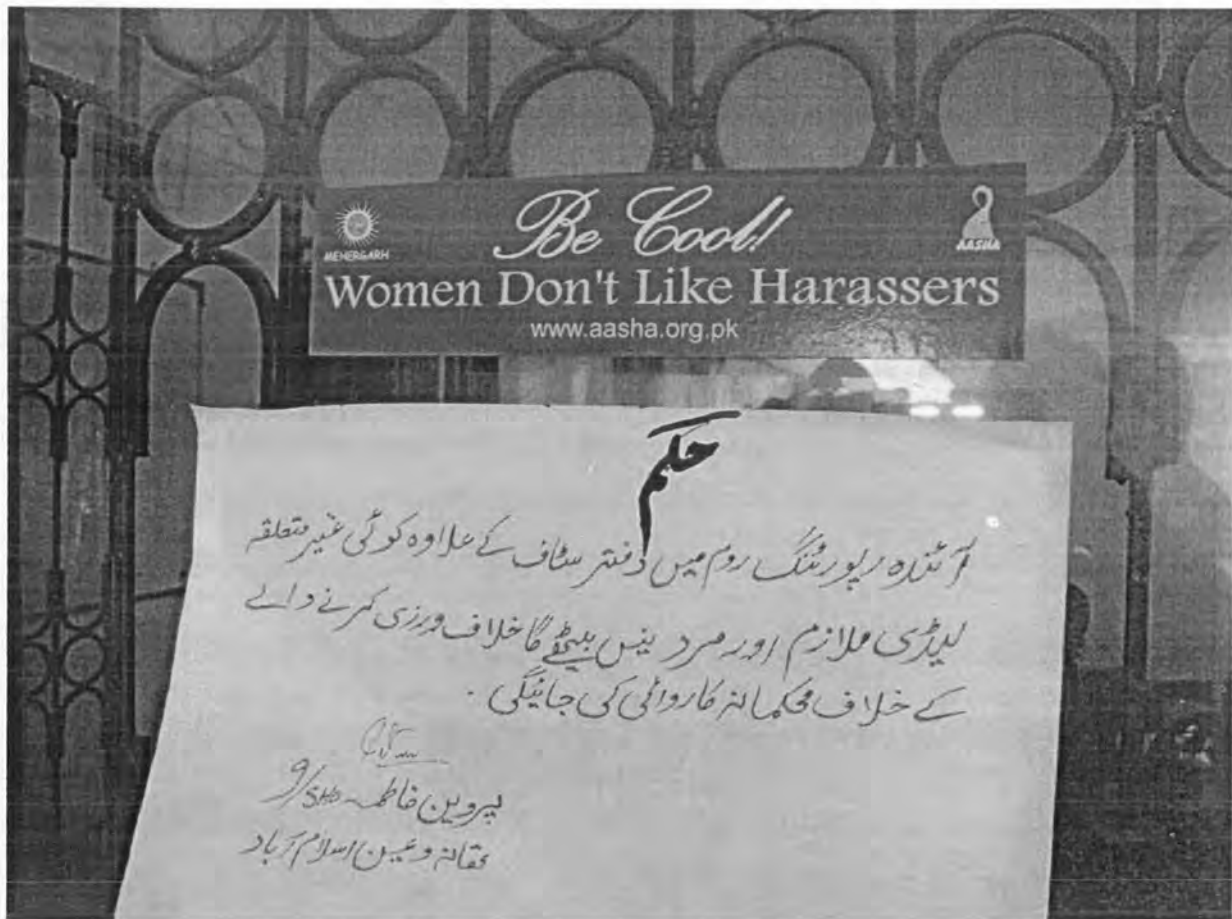 Be Cool!
MEHERGARH
AASHA
Women Don't Like Harassers
www.aasha.org.pk
حکم
آئندہ رپورٹنگ روم میں دفتر سٹاف کے علاوہ کوئی غیر متعلقہ
لیڈی ملازم اور مرد نہیں بیٹھے گا خلاف ورزی کرنے والے
کے خلاف محکمانہ کاروائی کی جائیگی ۔
پروین فاطمہ SHO/و
تھانہ ویمن اسلام آباد